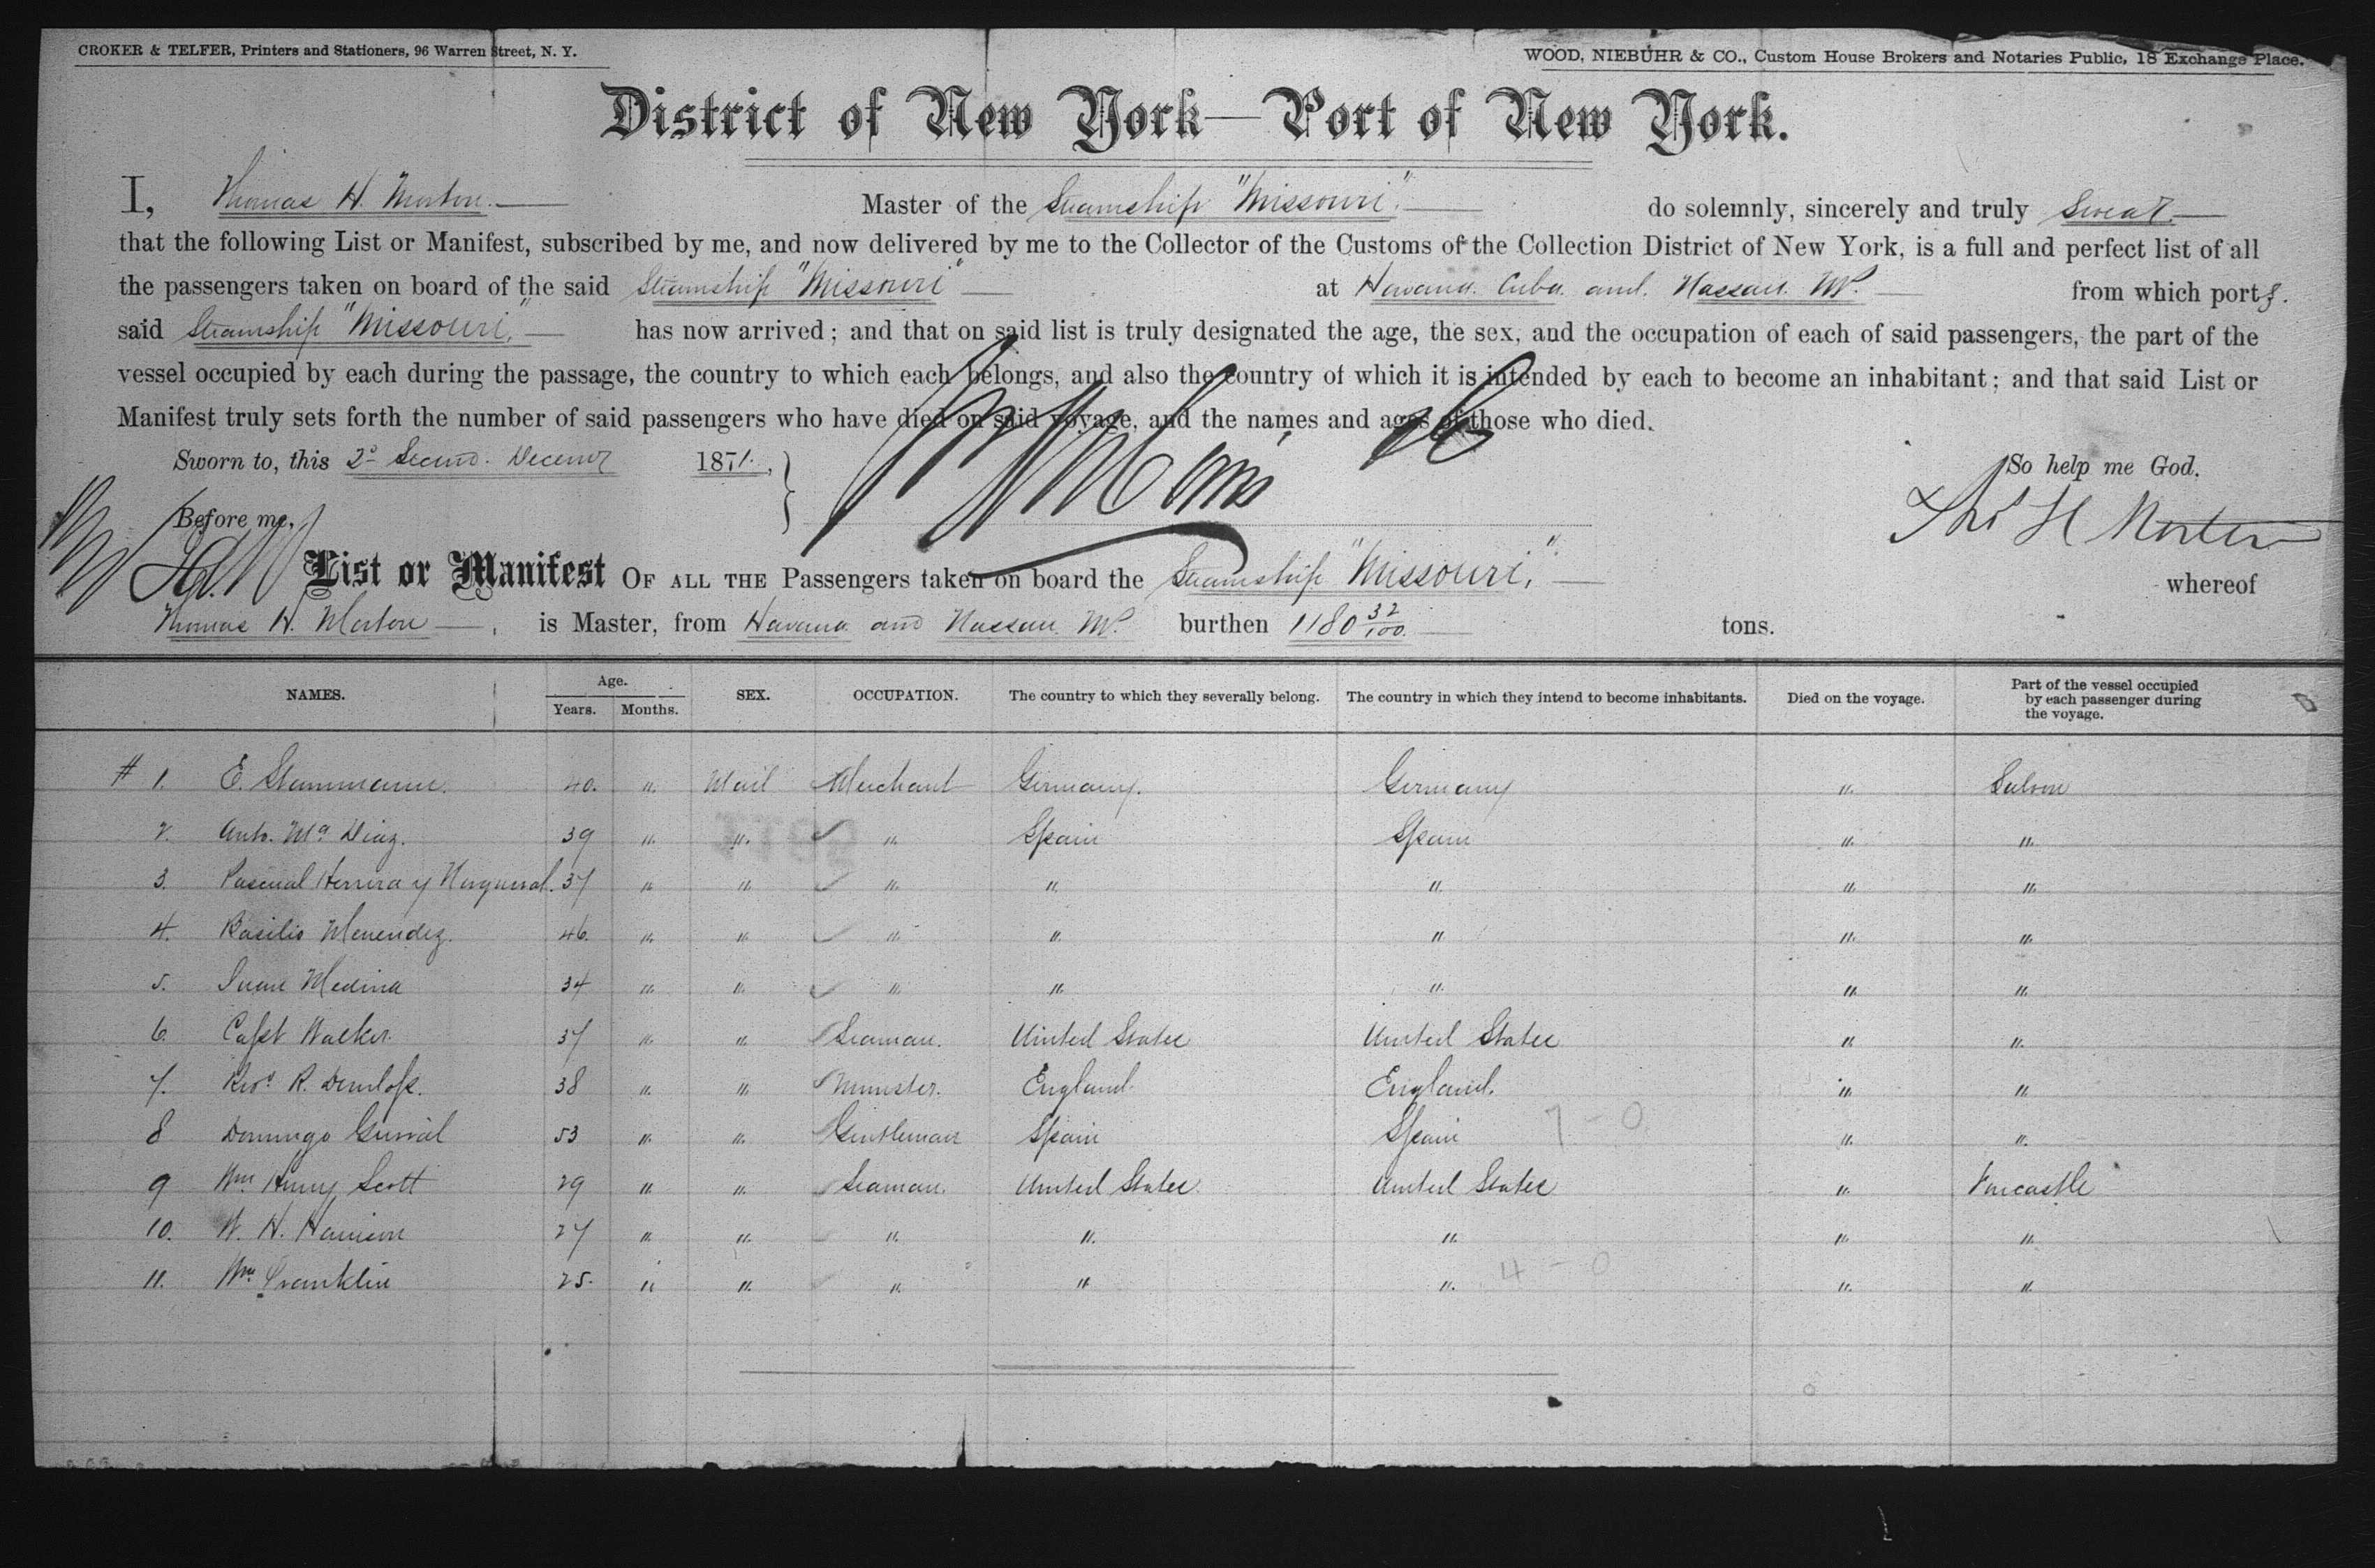 CROKER & TELFER, Printers and Stationers, 96 Warren Street, N. Y.
WOOD, NIEBUHR & CO., Custom House Brokers and Notaries Public, 18 Exchange Place.
District of New York—Port of New York.
I, Thomas H. Morton. Master of the Steamship "Missouri". do solemnly, sincerely and truly Swear
that the following List or Manifest, subscribed by me, and now delivered by me to the Collector of the Customs of the Collection District of New York, is a full and perfect list of all
the passengers taken on board of the said Steamship "Missouri" at Havana. Cuba. and. Nassau. NP. from which ports.
said Steamship "Missouri," has now arrived; and that on said list is truly designated the age, the sex, and the occupation of each of said passengers, the part of the
vessel occupied by each during the passage, the country to which each belongs, and also the country of which it is intended by each to become an inhabitant; and that said List or
Manifest truly sets forth the number of said passengers who have died on said voyage, and the names and ages of those who died.
Sworn to, this 2d Second. Decemr 1871. So help me God.
Before me, Thos H Morton
List or Manifest OF ALL THE Passengers taken on board the Steamship "Missouri," whereof
Thomas H. Morton, is Master, from Havana and Nassau NP. burthen 1180 32/100 tons.
NAMES. Age. Years. Months. SEX. OCCUPATION. The country to which they severally belong. The country in which they intend to become inhabitants. Died on the voyage. Part of the vessel occupied by each passenger during the voyage.
# 1. E. Stammann. 40. " Mail Merchant Germany. Germany " Saloon
2. Anto. Ma Diaz. 39 " " " Spain Spain " "
3. Pascual Herrera y 37 " " " " " " "
4. Basilio Menendez. 46. " " " " " " "
5. Juan Medina 34 " " " " " " "
6. Capt Walker. 37 " " Seaman. United States United States " "
7. R. Dunlop. 38 " " Minister. England. England. " "
8 Domingo 53 " " Gentleman Spain Spain " "
7 - 0
9 Wm Henry Scott 29 " " Seaman. United States. United States " Forcastle
10. W. H. Harrison 27 " " " " " " "
11. Wm Franklin 25. " " " " " " "
4 - 0